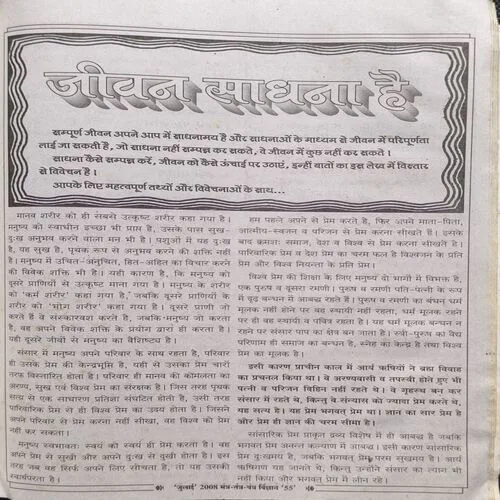 जीवन साधना है
सम्पूर्ण जीवन अपने आप में साधनामय है और साधनाओं के माध्यम से जीवन में परिपूर्णता
लाई जा सकती है, जो साधना नहीं सम्पन्न कर सकते, वे जीवन में कुछ नहीं कर सकते ।
साधना कैसे सम्पन्न करें, जीवन को कैसे ऊंचाई पर उठाएं, इन्हीं बातों का इस लेख में विस्तार
से विवेचन है ।
आपके लिए महत्वपूर्ण तथ्यों और विवेचनाओं के साथ...
मानव शरीर को ही सबसे उत्कृष्ट शरीर कहा गया है।
मनुष्य को स्वाधीन इच्छा भी प्राप्त है, उसके पास सुख-
दुःख अनुभव करने वाला मन भी है। पशुओं में यह दुःख
है, यह सुख है, पृथक रूप से अनुभव करने की शक्ति नहीं
है। मनुष्य में उचित-अनुचित, हित-अहित का विचार करने
की विवेक शक्ति भी है। यही कारण है, कि मनुष्य को
दूसरे प्राणियों से उत्कृष्ट माना गया है। मनुष्य के शरीर
को 'कर्म शरीर' कहा गया है, जबकि दूसरे प्राणियों के
शरीर को 'भोग शरीर' कहा गया है। दूसरे प्राणी जो
करते हैं वे संस्कारवश करते हैं, जबकि मनुष्य जो करता
है, वह अपने विवेक शक्ति के प्रयोग द्वारा ही करता है।
यही दूसरे जीवों से मनुष्य का वैशिष्ट्य है।
संसार में मनुष्य अपने परिवार के साथ रहता है, परिवार
ही उसके प्रेम की केन्द्रभूमि है, यहीं से उसका प्रेम चारों
तरफ विस्तारित होता है। परिवार ही मानव की कोमलता का
अरण्य, सुख एवं विश्व प्रेम का संरक्षक है। जिस तरह पृथक
सत्य से एक साधारण प्रतिज्ञा संघटित होती है, उसी तरह
पारिवारिक प्रेम से ही विश्व प्रेम का उदय होता है। जिसने
अपने परिवार से प्रेम करना नहीं सीखा, वह विश्व को प्रेम
नहीं कर सकता।
मनुष्य स्वभावतः स्वयं को स्वयं ही प्रेम करता है। वह
अपने प्रेम से सुखी और अपने दुःख से दुखी होता है। इस
तरह जब वह सिर्फ अपने लिए सोचता है, तो यह उसकी
स्वार्थपरता है।
हम पहले अपने से प्रेम करते है, फिर अपने माता-पिता,
आत्मीय-स्वजन व परिजन से प्रेम करना सीखते हैं। इसके
बाद क्रमशः समाज, देश व विश्व से प्रेम करना सीखते हैं।
पारिवारिक प्रेम व देश प्रेम का चरम फल है विश्वजन के प्रति
प्रेम और विश्व नियन्ता के प्रति प्रेम।
विश्व प्रेम की शिक्षा के लिए मनुष्य दो भागों में विभक्त है,
एक पुरुष व दूसरा रमणी। पुरुष व रमणी पति-पत्नी के रूप
में दृढ़ बन्धन में आबद्ध रहते हैं। पुरुष व रमणी का बंधन धर्म
मूलक नहीं होने पर वह स्थायी नहीं रहता, धर्म मूलक रहने
पर ही वह स्थायी व पवित्र रहता है। यह धर्म मूलक बन्धन न
रहने पर संसार पाप का क्षेत्र बन जाता है। स्त्री-पुरुष का वैध
परिणाम ही समाज का बन्धन है, स्नेह का केन्द्र है तथा विश्व
प्रेम का मूलक है।
इसी कारण प्राचीन काल में आर्य ऋषियों ने ब्रह्म विवाह
का प्रचलन किया था। वे अरण्यवासी व तपस्वी होते हुए भी
पत्नी व परिजन विहिन नहीं रहते थे। वे गृहस्थ बन कर
संसार में रहते थे, किन्तु वे संन्यास को ज्यादा प्रेम करते थे,
यह सत्य है। यह प्रेम भगवत् प्रेम था। ज्ञान का सार प्रेम है
और प्रेम ही ज्ञान की चरम सीमा है।
सांसारिक प्रेम प्राकृत द्रव्य विशेष में ही आबद्ध है जबकि
भगवत् प्रेम अनन्त कल्याण में आबद्ध है। इसी कारण सांसारिक
प्रेम दुःखमय है, जबकि भगवत् प्रेम परम सुखमय है। आर्य
ऋषिगण यह जानते थे, किन्तु उन्होंने संसार का त्याग भी
नहीं किया और भगवत् प्रेम में लीन रहे।
'जुलाई' 2008 मंत्र-तंत्र-यंत्र विज्ञान '55'